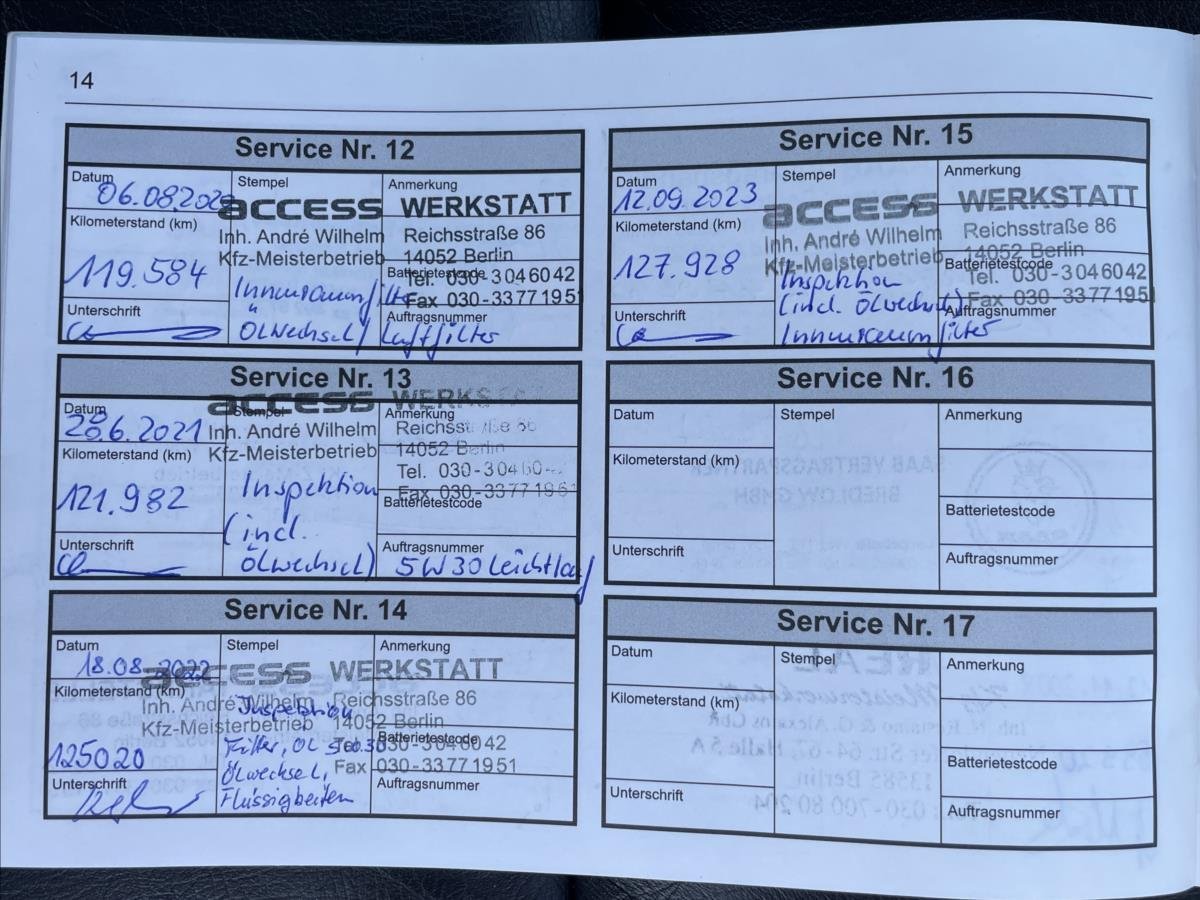 14
Service Nr. 12
Datum
Stempel
Anmerkung
06.08.2020
access WERKSTATT
Kilometerstand (km)
Inh. André Wilhelm
Reichsstraße 86
Kfz-Meisterbetrieb
14052 Berlin
119.584
Batterietestcode
Tel. 030-3046042
Innenraumfilter
Fax 030-33771951
Unterschrift
Auftragsnummer
Ölwechsel / Luftfilter
Service Nr. 13
access WERKS
Datum
Stempel
Anmerkung
28.6.2021
Inh. André Wilhelm
Kilometerstand (km)
Kfz-Meisterbetrieb
14052 Berlin
Tel. 030-30460
121.982
Inspektion
Fax 030-33771951
Batterietestcode
(incl.
Unterschrift
Auftragsnummer
Ölwechsel)
5W30 Leichtlauf
Service Nr. 14
Datum
Stempel
Anmerkung
18.08.2022
access WERKSTATT
Kilometerstand (km)
Inh. André Wilhelm
Reichsstraße 86
Inspektion
Kfz-Meisterbetrieb
14052 Berlin
Batterietestcode
125020
Filter, Öl
030-3046042
Ölwechsel,
Fax 030-33771951
Unterschrift
Auftragsnummer
Flüssigkeiten
Service Nr. 15
Datum
Stempel
Anmerkung
12.09.2023
access WERKSTATT
Kilometerstand (km)
Inh. André Wilhelm
Reichsstraße 86
Kfz-Meisterbetrieb
14052 Berlin
127.928
Batterietestcode
Tel. 030-3046042
Inspektion
Fax 030-33771951
(incl. Ölwechsel)
Unterschrift
Auftragsnummer
Innenraumfilter
Service Nr. 16
Datum
Stempel
Anmerkung
Kilometerstand (km)
Batterietestcode
Unterschrift
Auftragsnummer
Service Nr. 17
Datum
Stempel
Anmerkung
Kilometerstand (km)
Batterietestcode
Unterschrift
Auftragsnummer